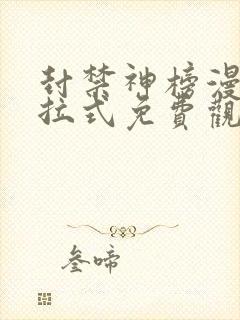 封禁神榜漫
拉式免費觀
叁啼